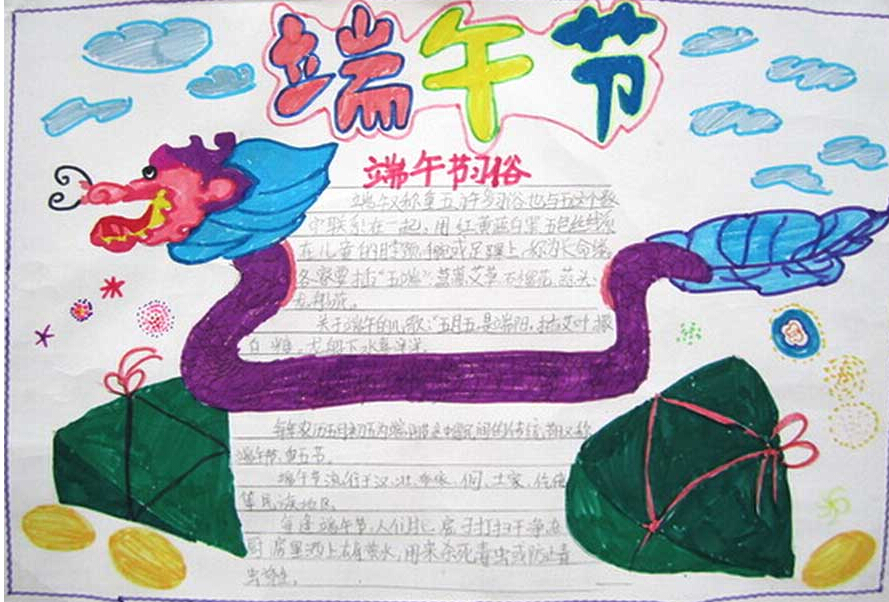 端午节
端午节习俗
端午又称重五,许多习俗也与五这个数
字联系在一起,用红黄蓝白黑五色丝线系
在儿童的脖颈、手腕或足踝上,称为长命缕。
各家要插"五端":菖蒲、艾草、石榴花、蒜头、
龙船花。
关于端午的儿歌:"五月五,是端阳,插艾叶,
白糖,龙船下水喜洋洋。
每年农历五月初五为端午节是中国民间的传统节日又称
端午节、重五节。
端午节流行于汉、壮、布依、侗、土家、仡佬
等民族地区。
每逢端午节,人们把房子打扫干净,在
厨房里洒上雄黄水,用来杀死毒虫或防止毒
虫孳生。